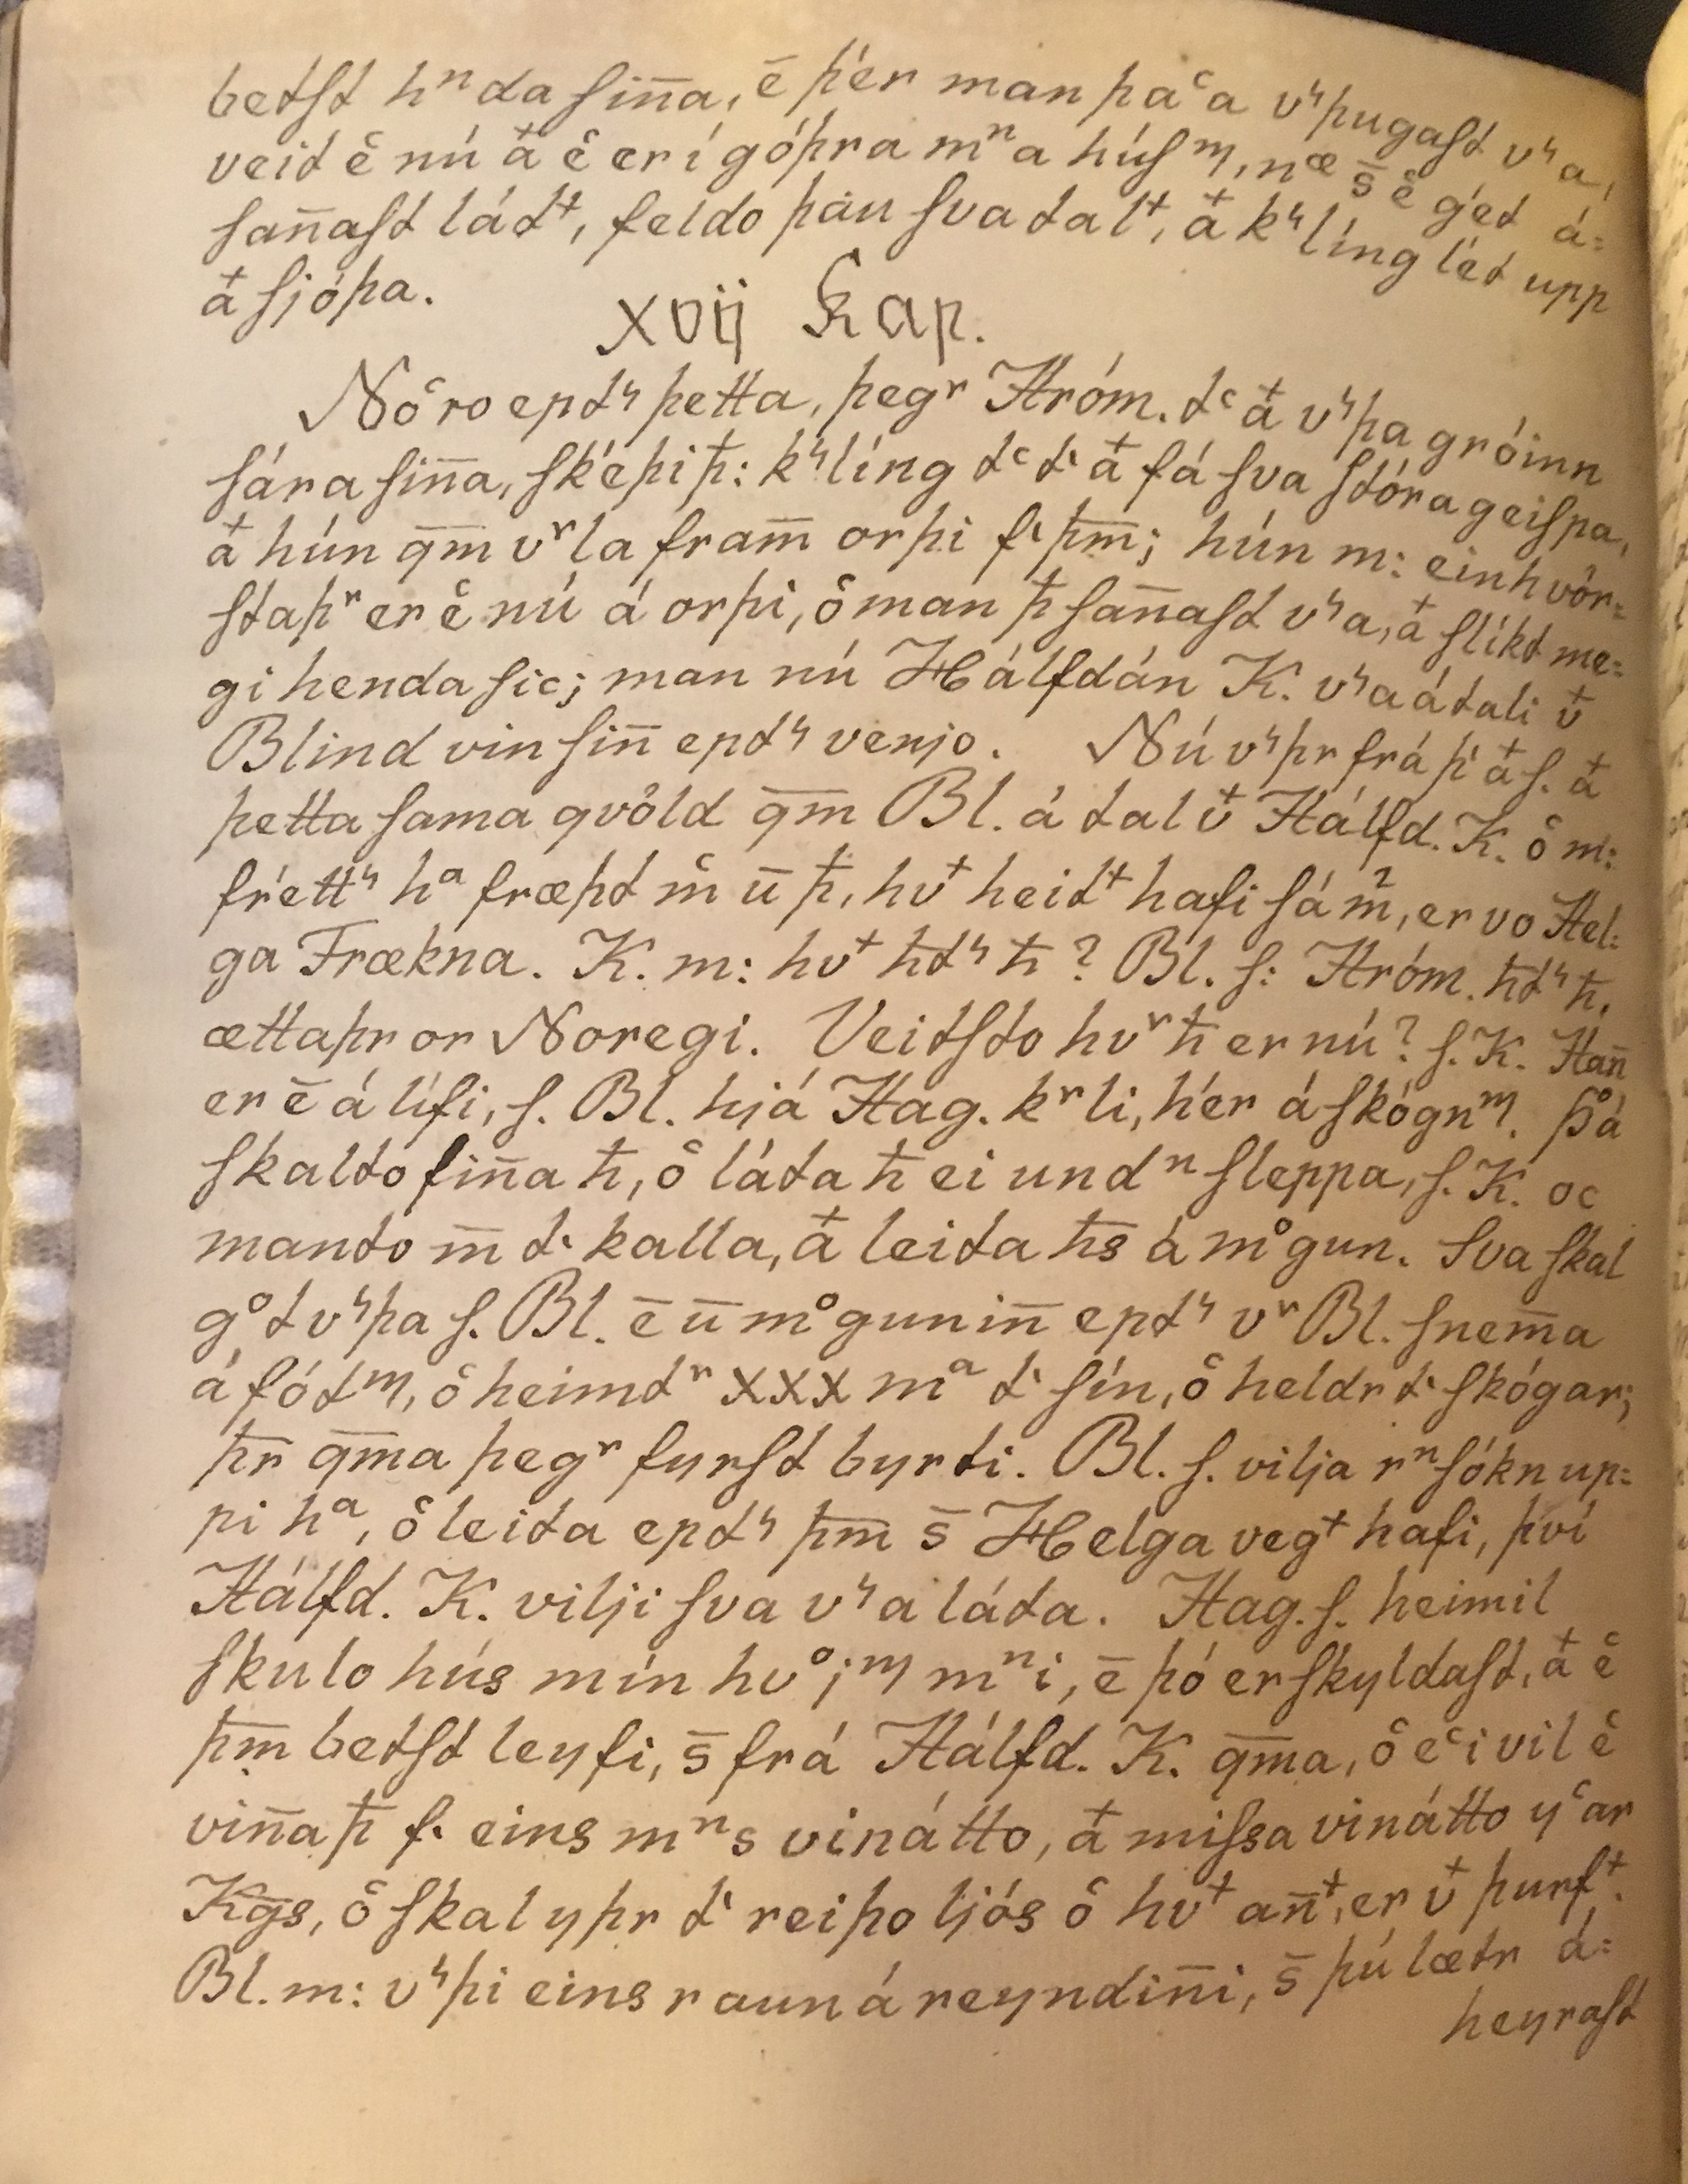 betſt hⁿda ſin̄a, ē þér man þaᶜa vʰþugaſt vʰa,
veit ec̄ nú at ec̄ er í góþra mⁿa húſᵐ, nᵆ s̄ ec̄ get á=
ſan̄aſt látᵗ, feldo þau ſva talᵗ, at kʰlíng lét upp
at ſjóþa.
xvij Kap.
Nócͨro eptʰ þetta, þegʳ Hróm. tᶜ at vʰþa gróinn
ſára ſin̄a, ſkéþi þ̄: kʰlíng tᶜ t at fá ſva ſtóra geiſpa,
at hún qm̄ vʳla fram̄ orþi fͥ þm̄; hún m: einhvör=
ſtaþʳ er ec̄ nú á orþi, oͨ man þ̄ ſan̄aſt vʰa, at ſlíkt me=
gi henda ſic; man nú Hálfdán K. vʰa á tali vᵗ
Blind vin ſin̄ eptʰ venjo. Nú vʰþr frá þͥ at ſ. at
þetta ſama qvöld qm̄ Bl. á tal vᵗ Hálfd. K. oͨ m:
fréttʰ hᵃ fræþt mͨ ū þ̄, hvᵗ heitᵗ hafi ſá m̄, er vo Hel=
ga Frækna. K. m: hvᵗ h̄tʰ h̄? Bl. ſ: Hróm. h̄tʰ h̄,
ættaþr or Noregi. Veitſto hvʳ h̄ er nú? ſ. K. Han̄
er ē á lífi, ſ. Bl. hjá Hag. kʳli, hér á ſkógnᵐ. Þá
ſkalto fin̄a h̄, oͨ láta h̄ ei undⁿ ſleppa, ſ. K. oc
manto m̄ tͥ kalla, at leita h̄s á mᵒgun. Sva ſkal
gᵒt vʰþa ſ. Bl. ē ū mᵒgunin̄ eptʰ vʳ Bl. ſnem̄a
á fótᵐ, oͨ heimtʳ xxx mᵃ tͥ ſín, oͨ heldr tͥ ſkógar;
þr̄ qm̄a þegʳ fyrſt byrti. Bl. ſ. vilja rⁿſókn up=
pi hᵃ, oͨ leita eptʰ þm̄ s̄ Helga vegᵗ hafi, því
Hálfd. K. vilji ſva vʰa láta. Hag. ſ. heimil
ſkulo hús mín hvᵒjᵐ mⁿi, ē þó er ſkyldaſt, at ec̄
þm̄ betſt leyfi, s̄ frá Hálfd. K. qm̄a, oͨ eᶜi vil ec̄
vin̄a þ̄ fͥ eins mⁿs vinátto, at miſsa vinátto yᶜar
Kḡs, oͨ ſkal yþr tͥ reiþo ljós oͨ hvᵗ an̄ᵗ, er vᵗ þurfᵗ.
Bl. m: vʰþi eins raun á reyndin̄i, s̄ þú lætr á=
heyraſt